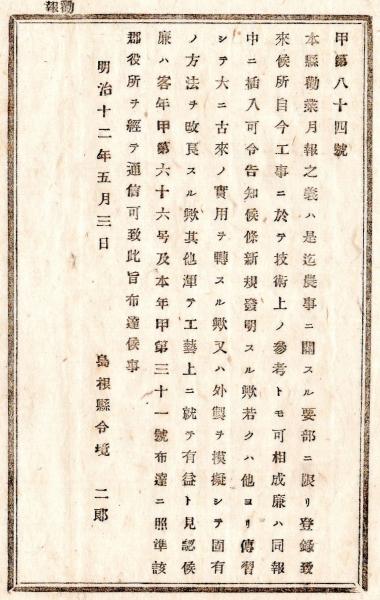 勸報
甲第八十四號
本縣勸業月報之義ハ是迄農事ニ關スル要部ニ限リ登錄致
來候所自今工事ニ於テ技術上ノ參考トモ可相成廉ハ同報
中ニ揷入可令告知候條新規發明スル歟若クハ他ヨリ傳習
シテ大ニ古來ノ實用ヲ轉スル歟又ハ外製ヲ模擬シテ固有
ノ方法ヲ改良スル歟其他渾テ工藝上ニ就テ有益ト見認候
廉ハ客年甲第六十六号及本年甲第三十一號布達ニ照準該
郡役所ヲ經テ通信可致此旨布達候事
明治十二年五月三日
島根縣令境 二郎